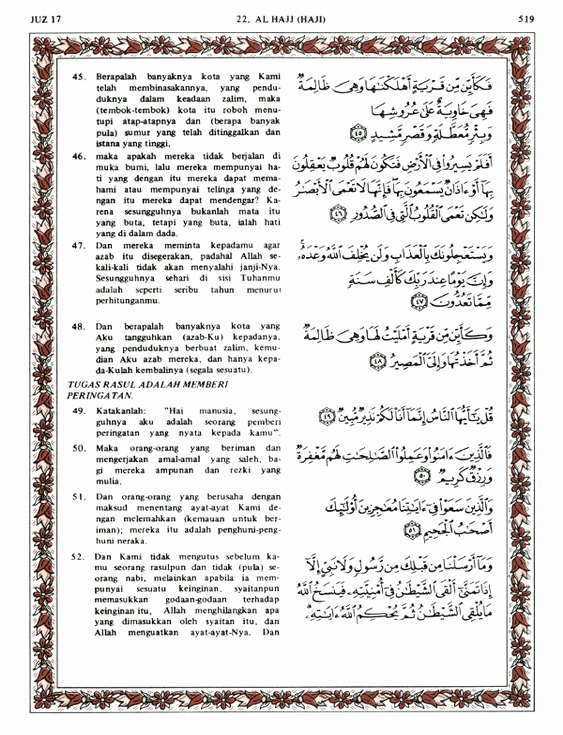 JUZ 17
22. AL HAJJ (HAJI)
519
45. Berapalah banyaknya kota yang Kami
telah membinasakannya, yang pendu-
duknya dalam keadaan zalim, maka
(tembok-tembok) kota itu roboh menu-
tupi atap-atapnya dan (berapa banyak
pula) sumur yang telah ditinggalkan dan
istana yang tinggi,
فَكَأَيِّن مِّن قَرْيَةٍ أَهْلَكْنَٰهَا وَهِىَ ظَالِمَةٌ
فَهِىَ خَاوِيَةٌ عَلَىٰ عُرُوشِهَا
وَبِئْرٍ مُّعَطَّلَةٍ وَقَصْرٍ مَّشِيدٍ ﴿٤٥﴾
46. maka apakah mereka tidak berjalan di
muka bumi, lalu mereka mempunyai ha-
ti yang dengan itu mereka dapat mema-
hami atau mempunyai telinga yang de-
ngan itu mereka dapat mendengar? Ka-
rena sesungguhnya bukanlah mata itu
yang buta, tetapi yang buta, ialah hati
yang di dalam dada.
أَفَلَمْ يَسِيرُوا۟ فِى ٱلْأَرْضِ فَتَكُونَ لَهُمْ قُلُوبٌ يَعْقِلُونَ
بِهَآ أَوْ ءَاذَانٌ يَسْمَعُونَ بِهَا فَإِنَّهَا لَا تَعْمَى ٱلْأَبْصَٰرُ
وَلَٰكِن تَعْمَى ٱلْقُلُوبُ ٱلَّتِى فِى ٱلصُّدُورِ ﴿٤٦﴾
47. Dan mereka meminta kepadamu agar
azab itu disegerakan, padahal Allah se-
kali-kali tidak akan menyalahi janji-Nya.
Sesungguhnya sehari di sisi Tuhanmu
adalah seperti seribu tahun menurut
perhitunganmu.
وَيَسْتَعْجِلُونَكَ بِٱلْعَذَابِ وَلَن يُخْلِفَ ٱللَّهُ وَعْدَهُۥ
وَإِنَّ يَوْمًا عِندَ رَبِّكَ كَأَلْفِ سَنَةٍ
مِّمَّا تَعُدُّونَ ﴿٤٧﴾
48. Dan berapalah banyaknya kota yang
Aku tangguhkan (azab-Ku) kepadanya,
yang penduduknya berbuat zalim, kemu-
dian Aku azab mereka, dan hanya kepa-
da-Kulah kembalinya (segala sesuatu).
وَكَأَيِّن مِّن قَرْيَةٍ أَمْلَيْتُ لَهَا وَهِىَ ظَالِمَةٌ
ثُمَّ أَخَذْتُهَا وَإِلَىَّ ٱلْمَصِيرُ ﴿٤٨﴾
TUGAS RASUL ADALAH MEMBERI
PERINGATAN.
49. Katakanlah: "Hai manusia, sesung-
guhnya aku adalah seorang pemberi
peringatan yang nyata kepada kamu".
قُلْ يَٰٓأَيُّهَا ٱلنَّاسُ إِنَّمَآ أَنَا۠ لَكُمْ نَذِيرٌ مُّبِينٌ ﴿٤٩﴾
50. Maka orang-orang yang beriman dan
mengerjakan amal-amal yang saleh, ba-
gi mereka ampunan dan rezki yang
mulia.
فَٱلَّذِينَ ءَامَنُوا۟ وَعَمِلُوا۟ ٱلصَّٰلِحَٰتِ لَهُم مَّغْفِرَةٌ
وَرِزْقٌ كَرِيمٌ ﴿٥٠﴾
51. Dan orang-orang yang berusaha dengan
maksud menentang ayat-ayat Kami de-
ngan melemahkan (kemauan untuk ber-
iman); mereka itu adalah penghuni-peng-
huni neraka.
وَٱلَّذِينَ سَعَوْا۟ فِىٓ ءَايَٰتِنَا مُعَٰجِزِينَ أُو۟لَٰٓئِكَ
أَصْحَٰبُ ٱلْجَحِيمِ ﴿٥١﴾
52. Dan Kami tidak mengutus sebelum ka-
mu seorang rasulpun dan tidak (pula) se-
orang nabi, melainkan apabila ia mem-
punyai sesuatu keinginan, syaitanpun
memasukkan godaan-godaan terhadap
keinginan itu, Allah menghilangkan apa
yang dimasukkan oleh syaitan itu, dan
Allah menguatkan ayat-ayat-Nya. Dan
وَمَآ أَرْسَلْنَا مِن قَبْلِكَ مِن رَّسُولٍ وَلَا نَبِىٍّ إِلَّآ
إِذَا تَمَنَّىٰٓ أَلْقَى ٱلشَّيْطَٰنُ فِىٓ أُمْنِيَّتِهِۦ فَيَنسَخُ ٱللَّهُ
مَا يُلْقِى ٱلشَّيْطَٰنُ ثُمَّ يُحْكِمُ ٱللَّهُ ءَايَٰتِهِۦ